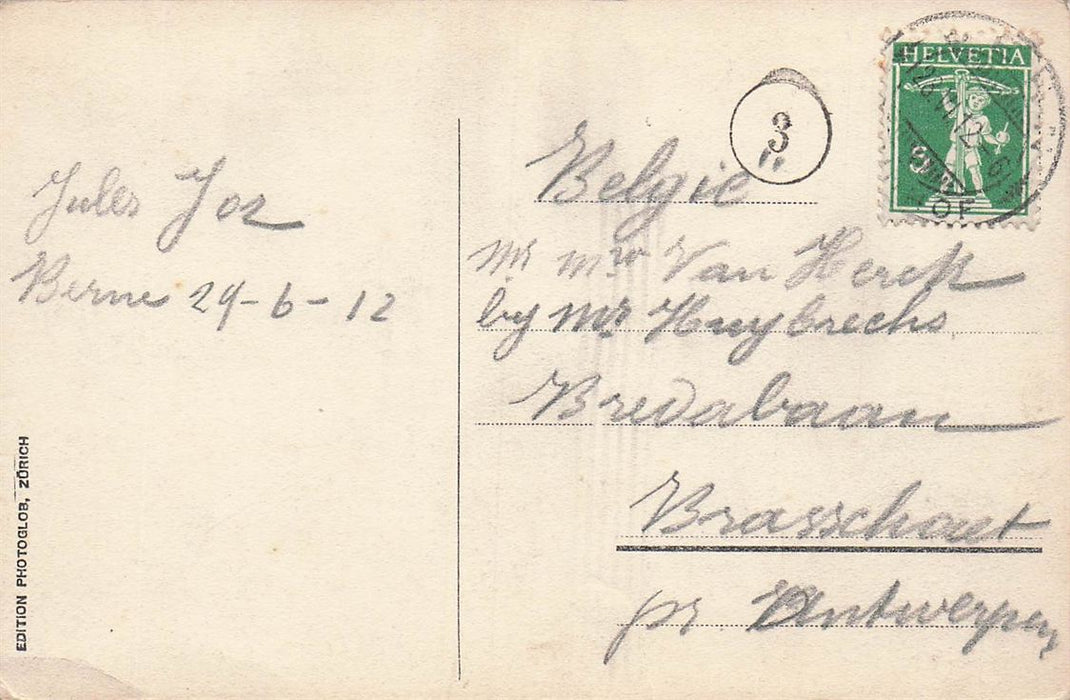 Jules Jos
Berne 29-6-12
EDITION PHOTOGLOB, ZÜRICH
HELVETIA
3
België
Mr mw Van Herck
by Mr Huybrechs
Bredabaan
Brasschaet
pr Antwerpen